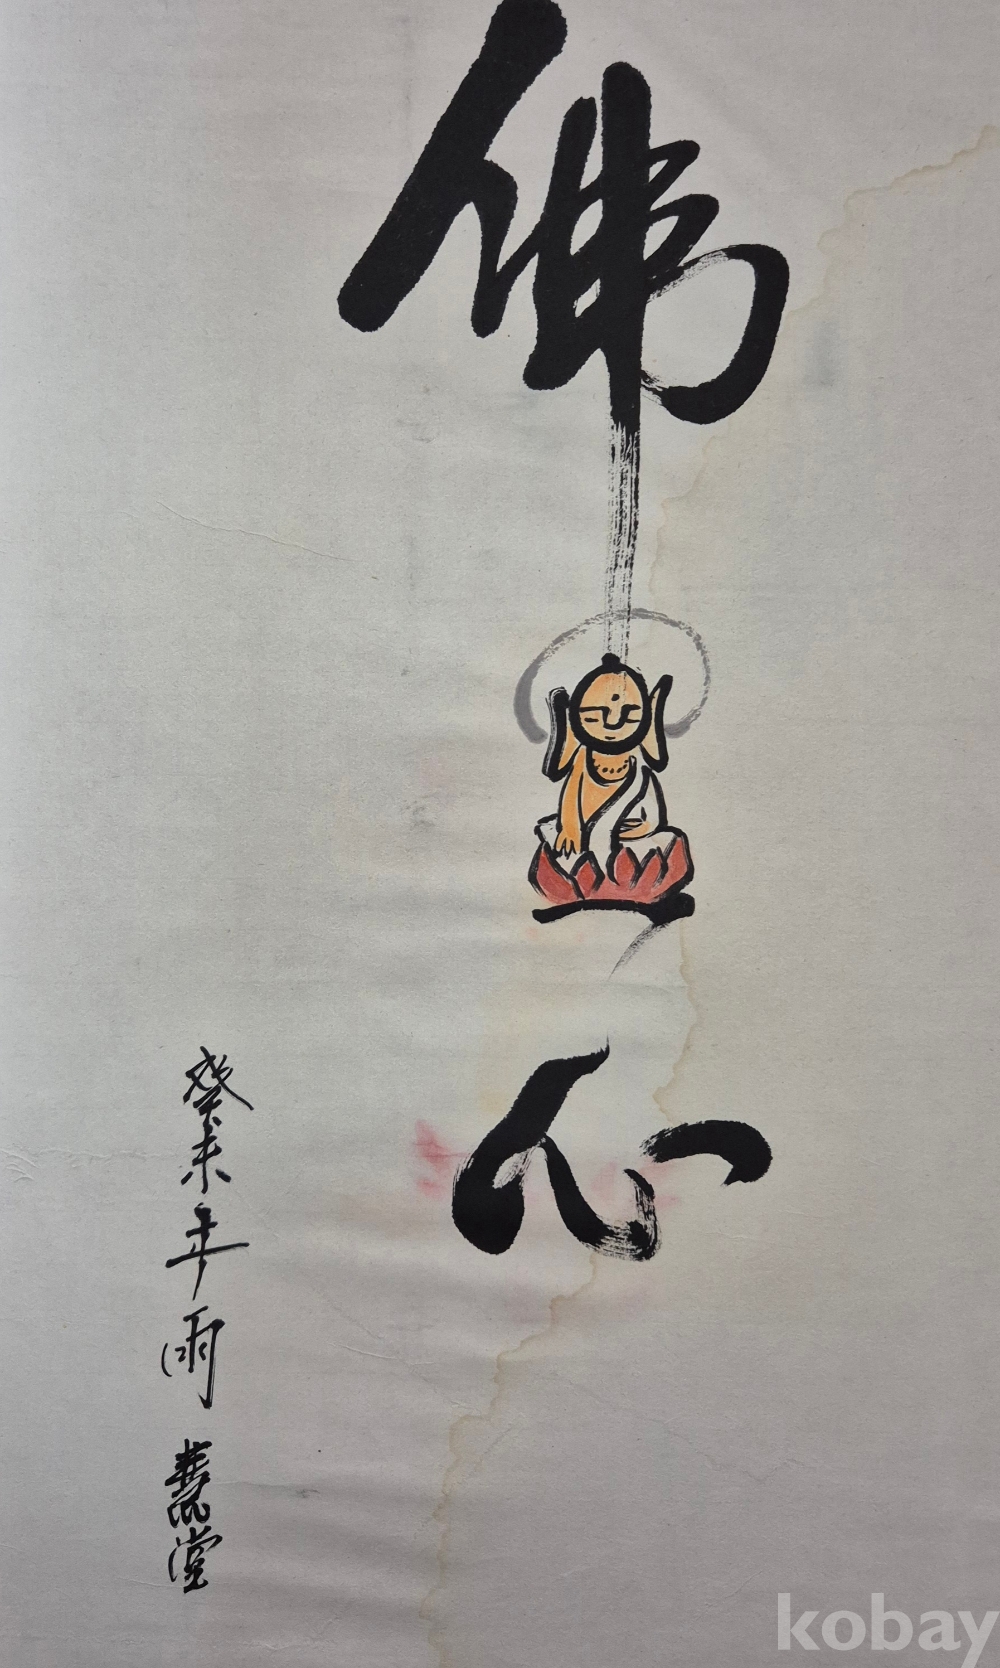 佛心
癸未年雨慧堂
kobay